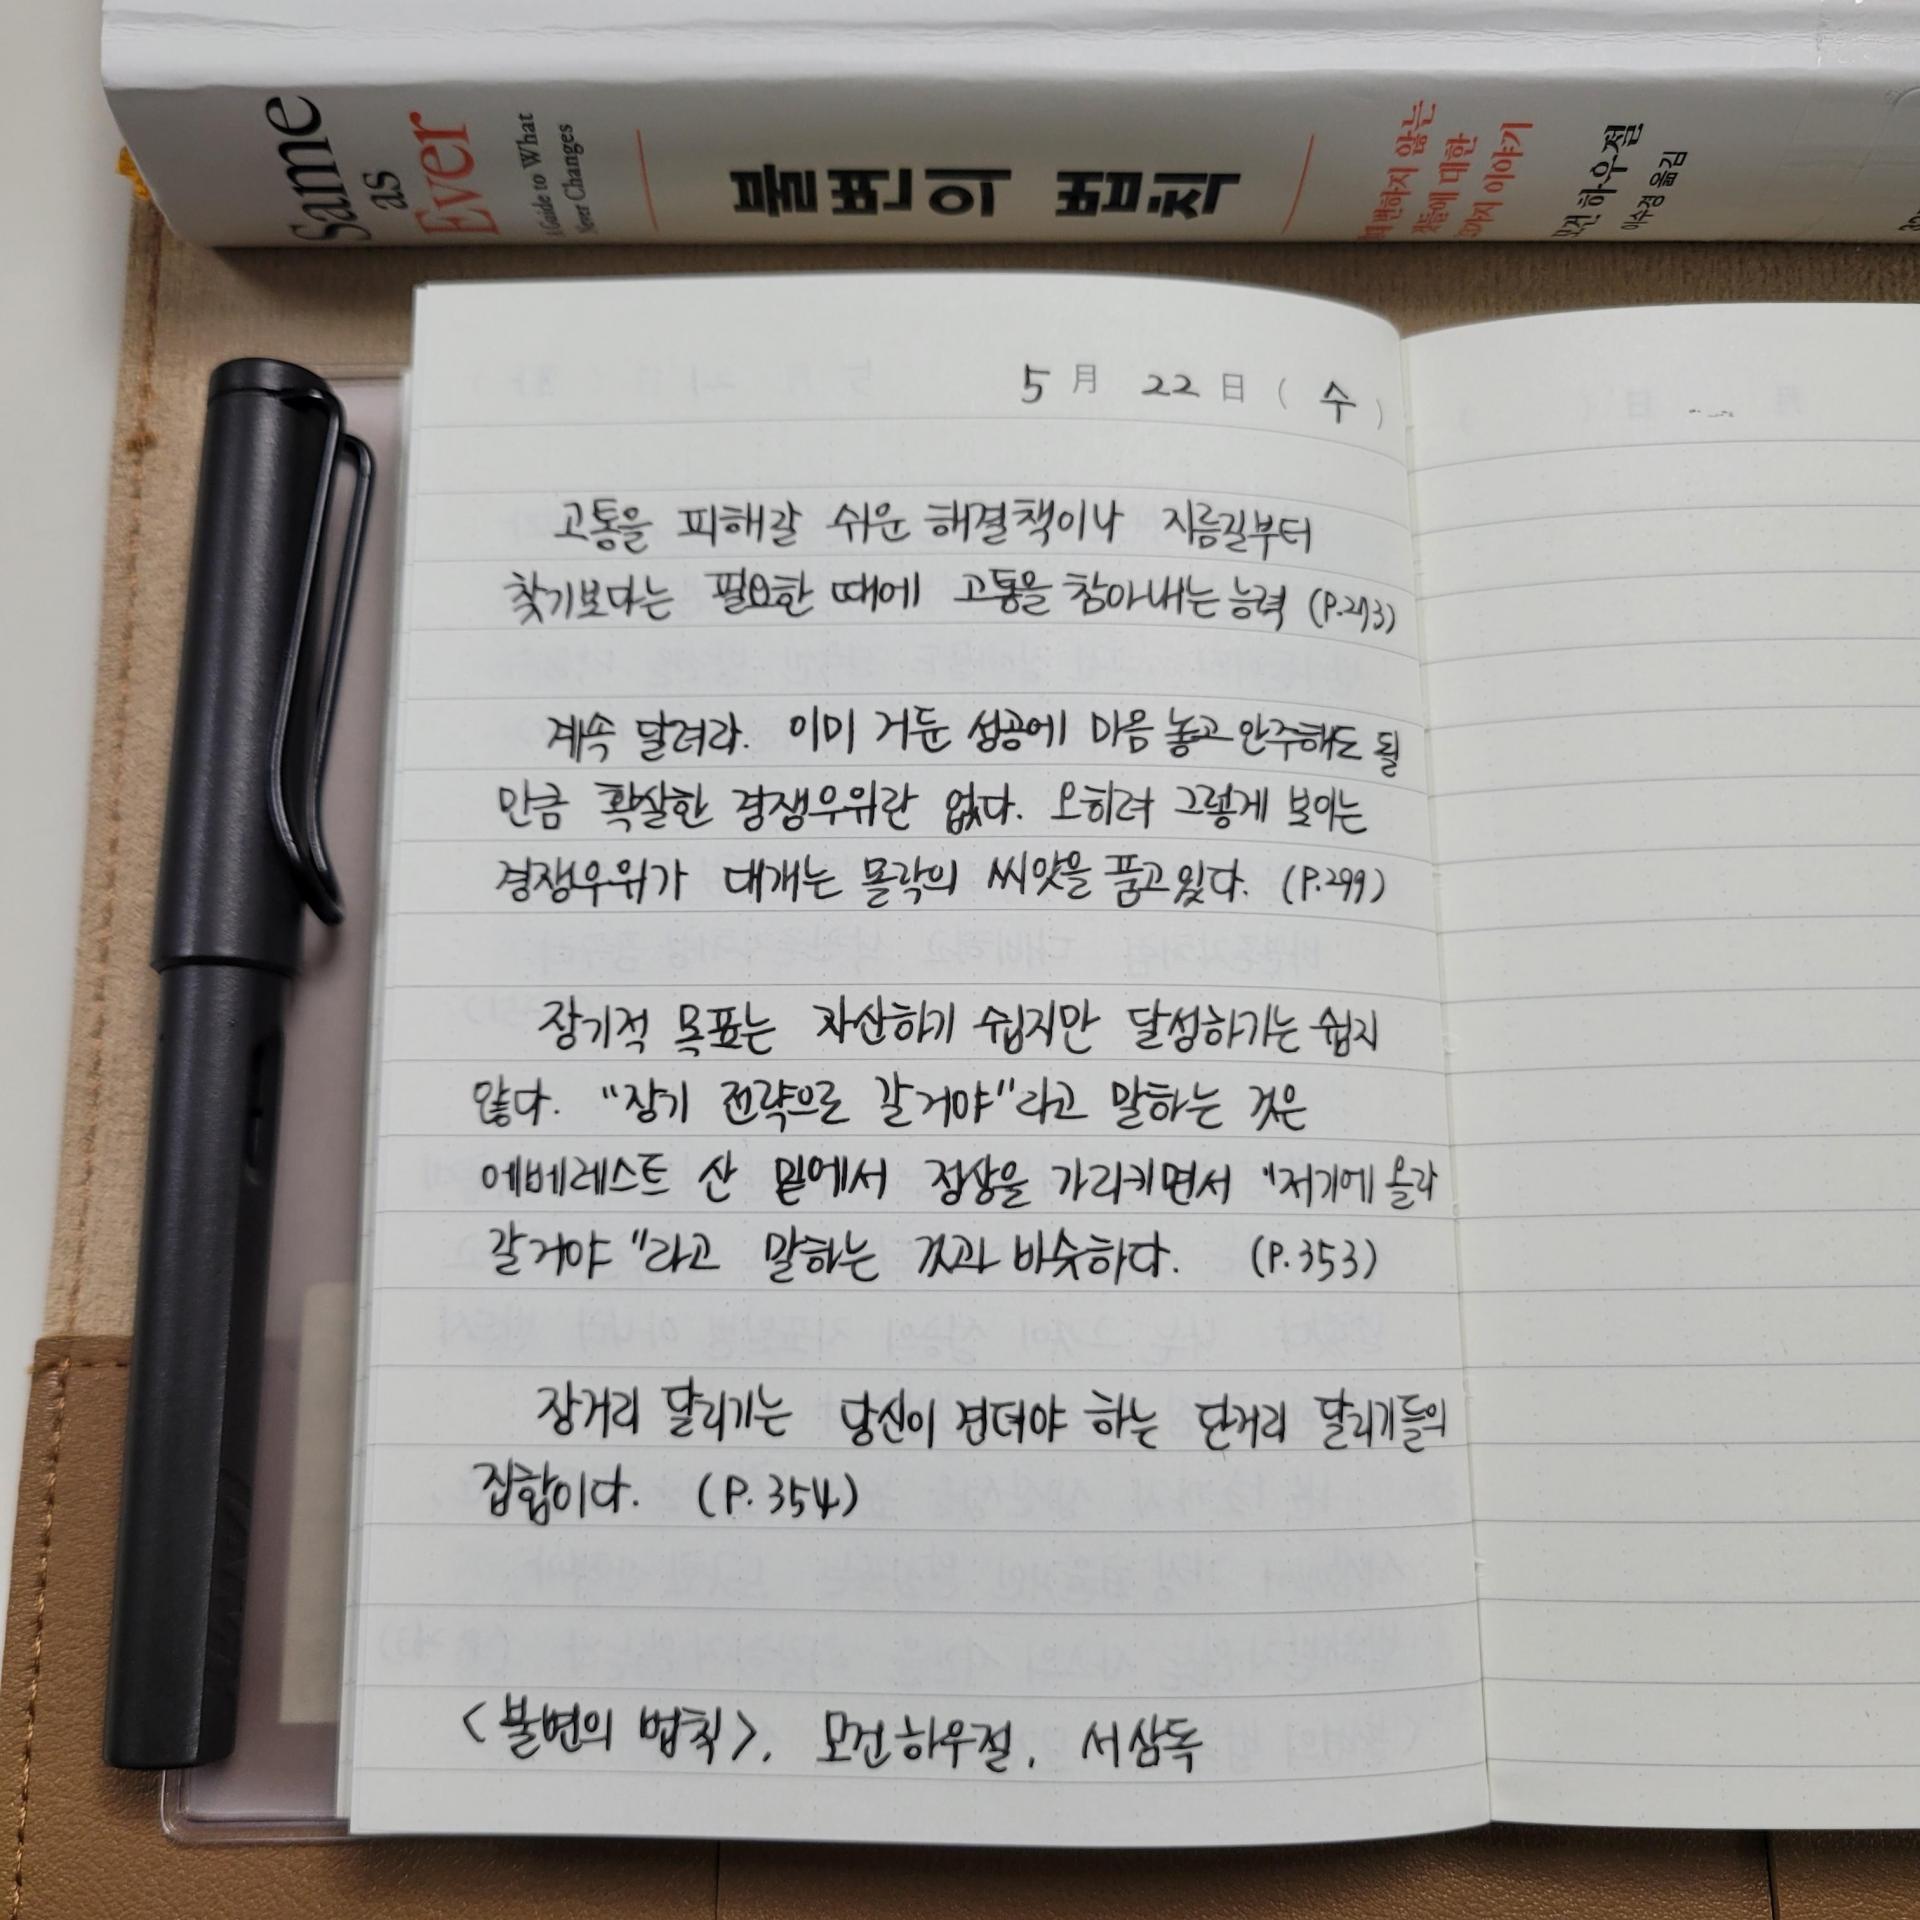 Same
as
Ever
A Guide to What
Never Changes
불변의 법칙
변하지 않는
것들에 대한
이야기
모건 하우절
이수경 옮김
5月 22日(수)
고통을 피해갈 쉬운 해결책이나 지름길부터
찾기보다는 필요한 때에 고통을 참아내는 능력 (P.273)
계속 달려라. 이미 거둔 성공에 마음 놓고 안주해도 될
만큼 확실한 경쟁우위란 없다. 오히려 그렇게 보이는
경쟁우위가 대개는 몰락의 씨앗을 품고있다. (P.299)
장기적 목표는 자산하기 쉽지만 달성하기는 쉽지
않다. "장기 전략으로 갈거야"라고 말하는 것은
에베레스트 산 밑에서 정상을 가리키면서 "저기에 올라
갈거야"라고 말하는 것과 비슷하다. (P.353)
장거리 달리기는 당신이 견뎌야 하는 단거리 달리기들의
집합이다. (P.354)
<불변의 법칙>, 모건하우절, 서삼독
月 日(
LAMY